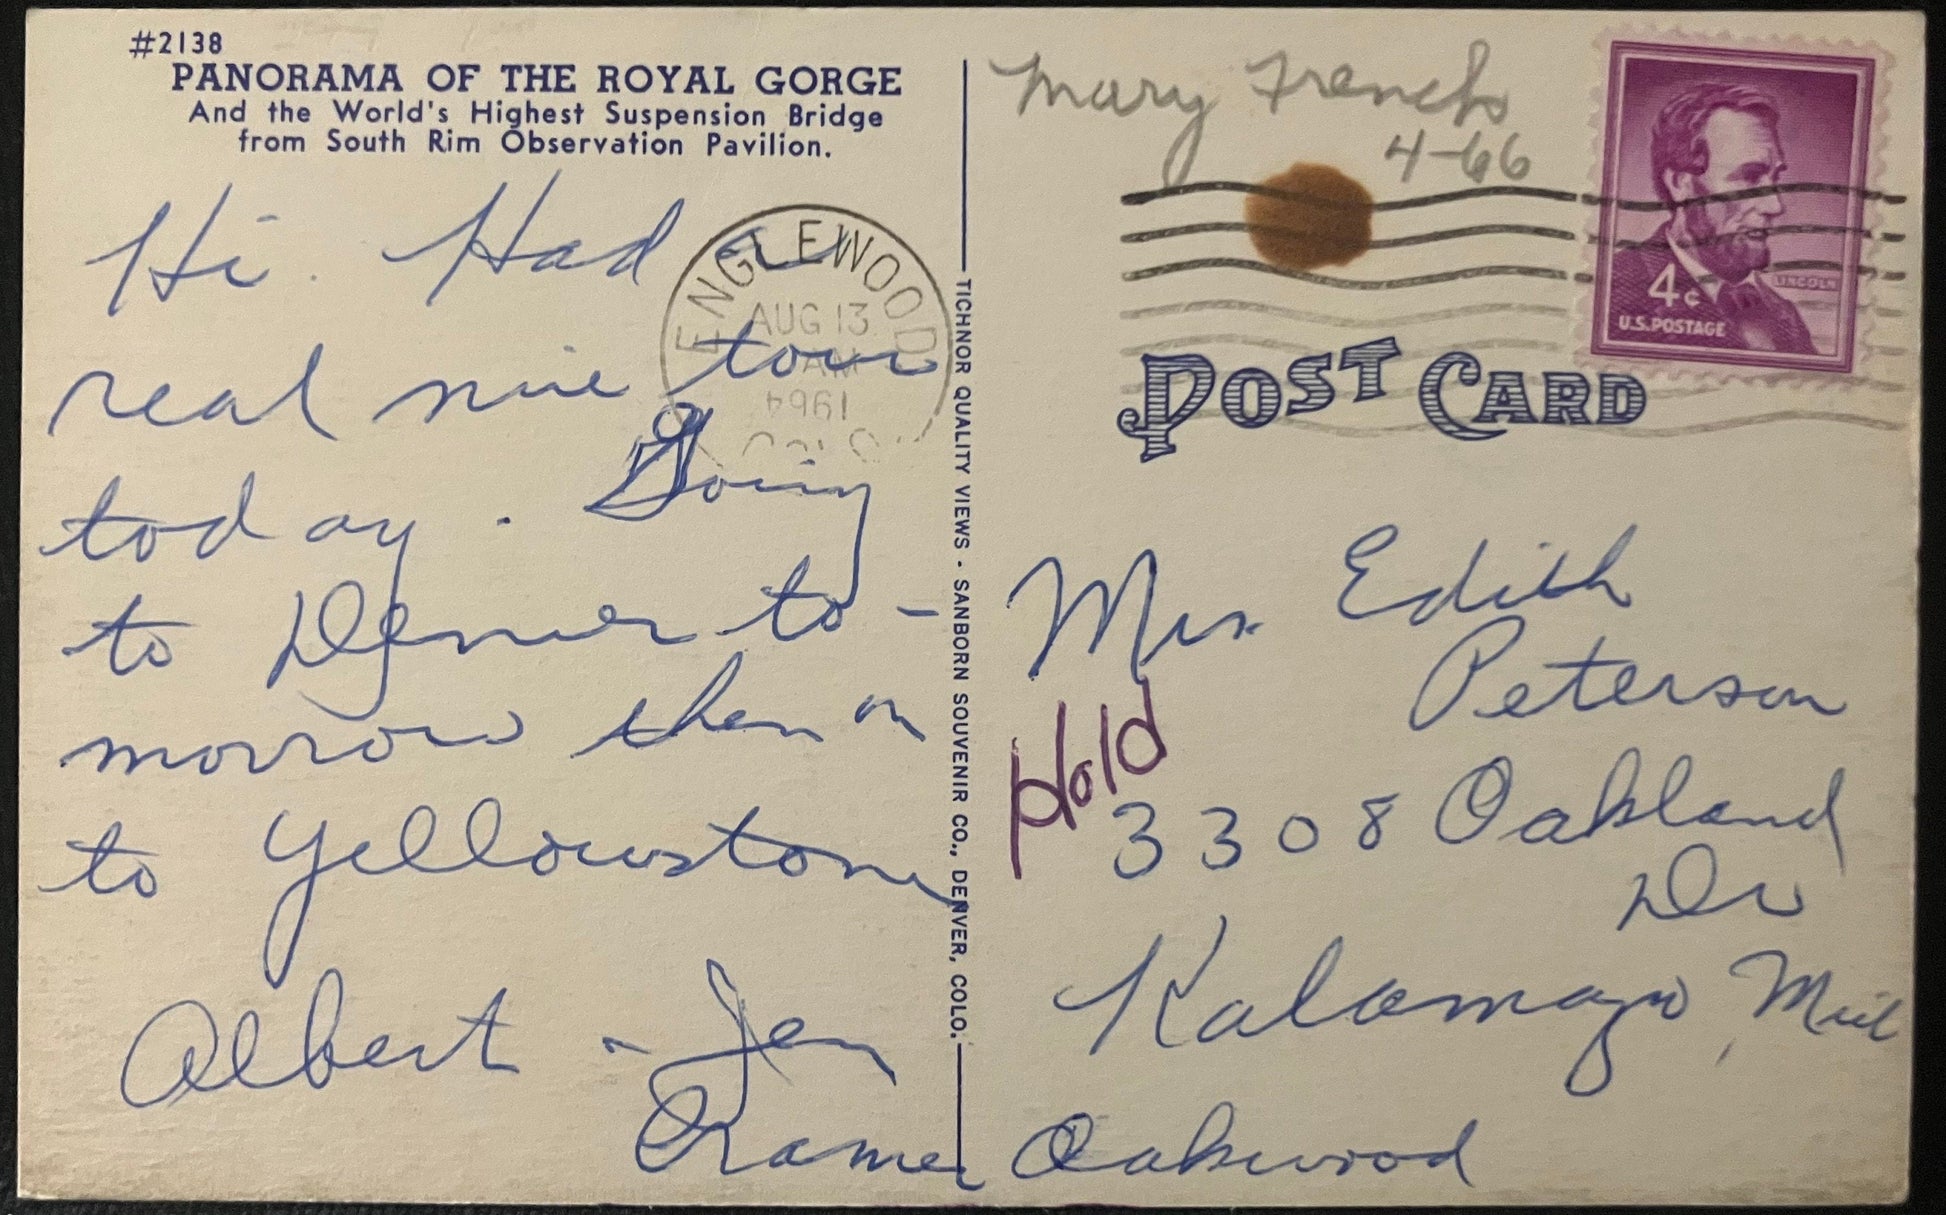 #2138
PANORAMA OF THE ROYAL GORGE
And the World's Highest Suspension Bridge
from South Rim Observation Pavilion.
Hi. Had a
real nice tour
today. Going
to Denver to-
morrow then on
to Yellowstone
Albert - Jen
Cramer
ENGLEWOOD
AUG 13
AM
1961
COLO.
TICHNOR QUALITY VIEWS - SANBORN SOUVENIR CO., DENVER, COLO.
Mary French
4-66
4¢
LINCOLN
U.S. POSTAGE
POST CARD
Mrs. Edith
Peterson
Hold
3308 Oakland
Dr
Kalamazoo, Mich
Oakwood